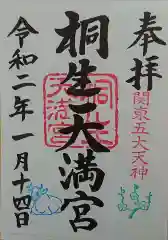 奉拝
関東五大天神
桐生天満宮
令和二年一月十四日